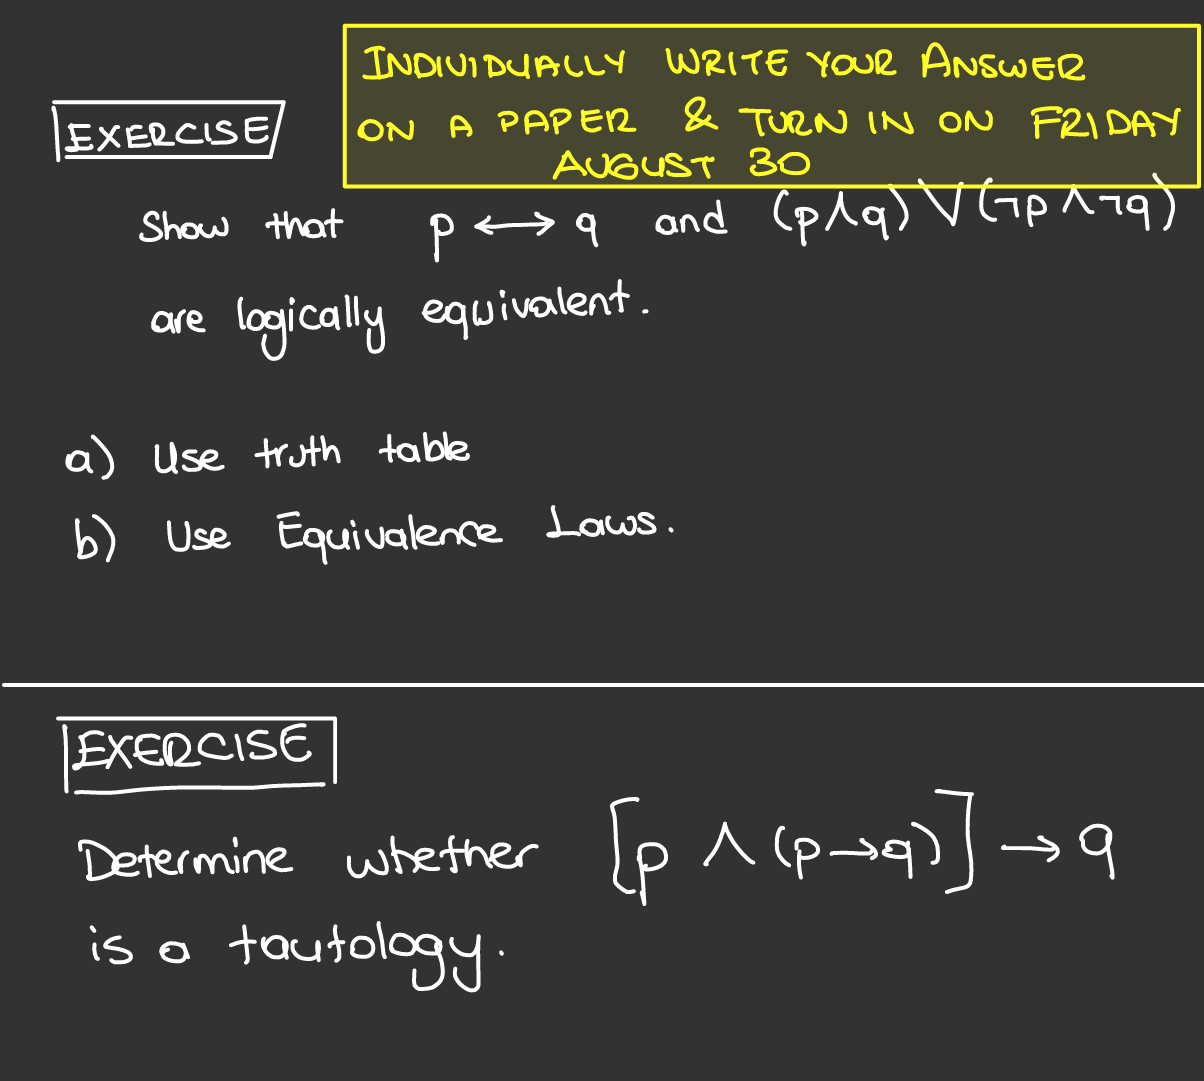 INDIVIDUALLY WRITE YOUR ANSWER
ON A PAPER & TURN IN ON FRIDAY
AUGUST 30
EXERCISE
Show that p ↔ q and (p∧q) ∨ (¬p ∧ ¬q)
are logically equivalent.
a) Use truth table
b) Use Equivalence Laws.
EXERCISE
Determine whether [p ∧ (p→q)] → q
is a tautology.